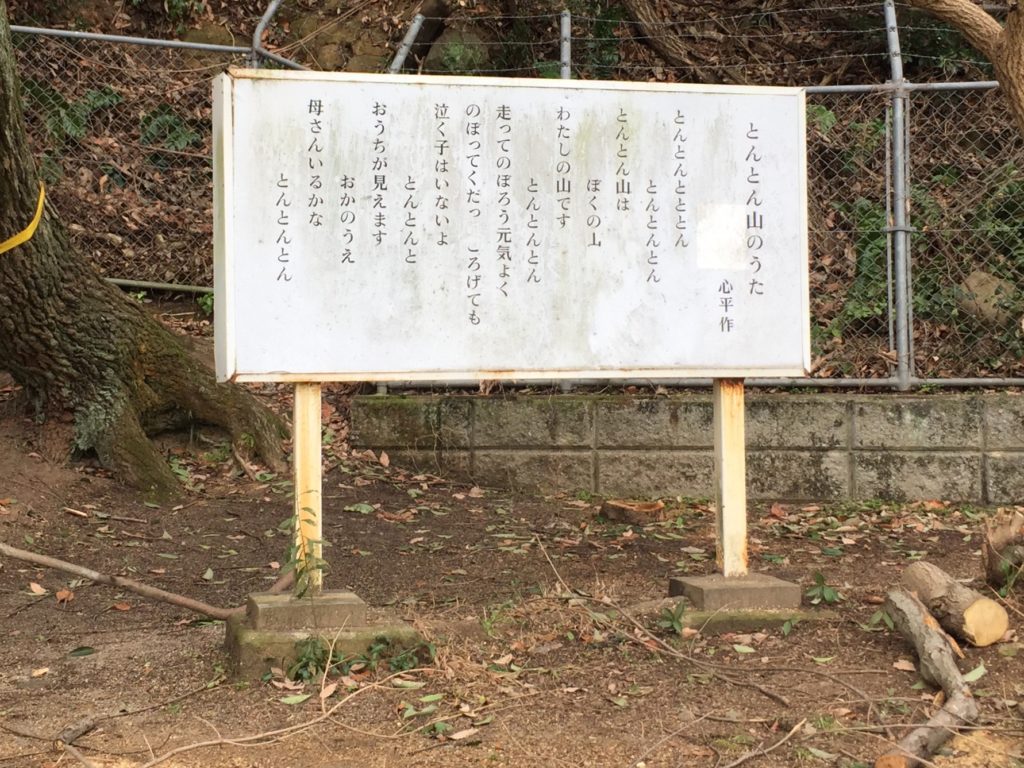 とんとん山のうた
心平作
とんとんとととん
とんとんとん
とんとん山は
ぼくの山
わたしの山です
とんとんとん
走ってのぼろう元気よく
のぼってくだっ　ころげても
泣く子はいないよ
とんとんと
おうちが見えます
おかのうえ
母さんいるかな
とんとんとん